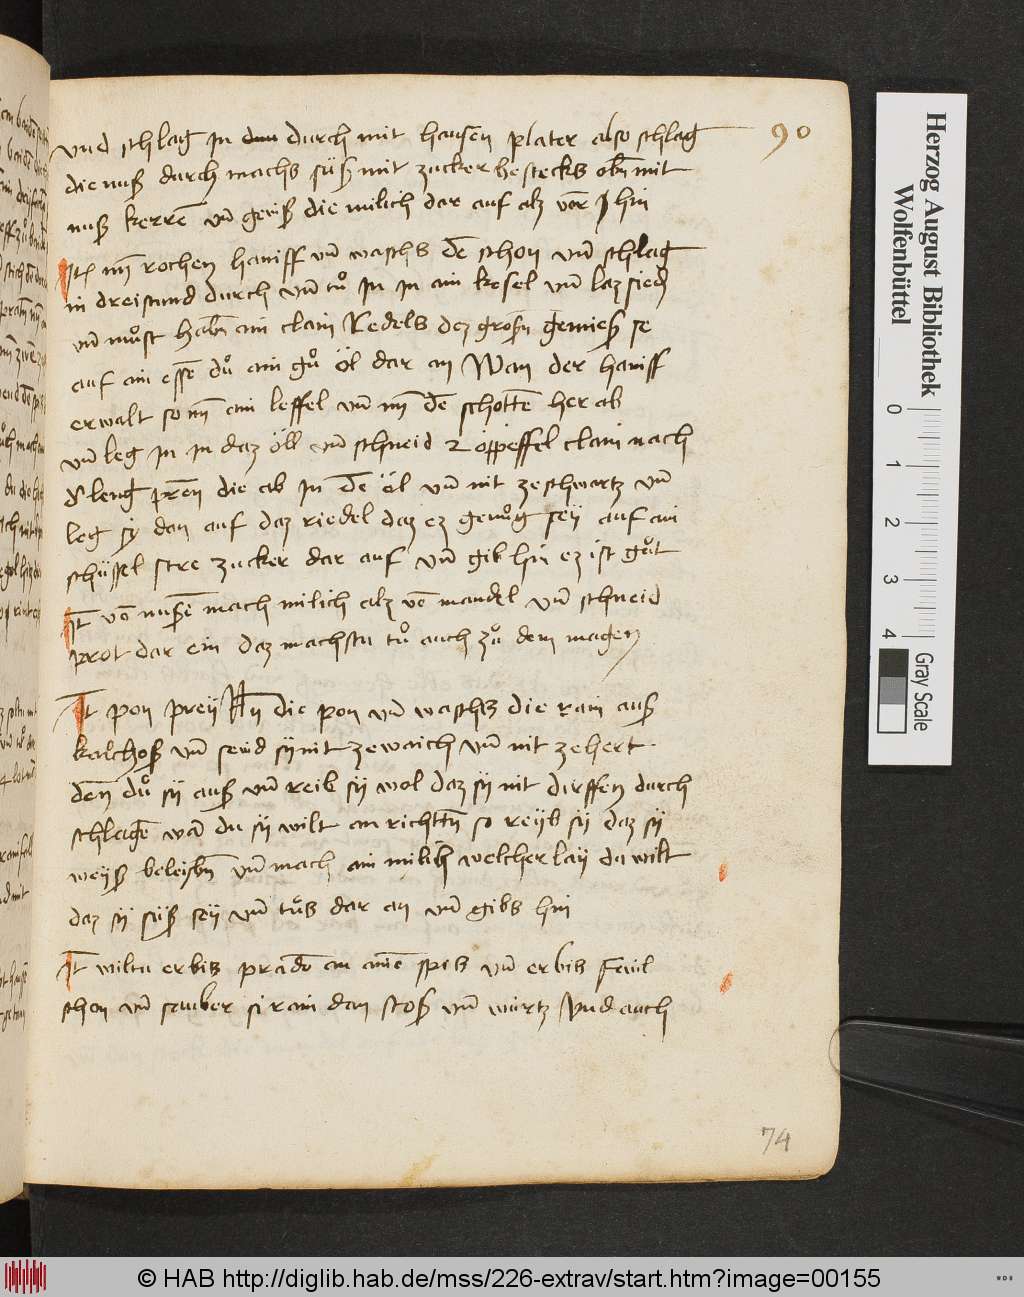 90
vnd schlag in durch mit hausen plater also schlag
die nuß durch machs süß mit zucker bestecks obn̄ mit
nuß kerrē vn̄ geuß die milich dar auf alz vor hin
It nȳ rochen haniff vn̄ waschs dē schon vn̄ schlag
in dreistund durch vn̄ tuͦ in in ain kesel vn̄ laz sieden
vn̄ muͦst habn̄ ain clain Redels dez grosn̄ gemieß se
auf ain essē duͦ ain guͦ öl dar an Wan der haniff
erwalt so nȳ ain leffel vn̄ nȳ dē schottē her ab
vn̄ leg in in daz öll vn̄ schneid 2 öppffel clain nach
der leng pren̄ die ab in dē öl vn̄ nit ze schwartz vn̄
leg sy dan auf daz riedel daz ez genuͦg sey auf ain
schüssel stre zucker dar auf vn̄ gib hin ez ist guͦt
It vō nusē mach milich alz vō mandel vn̄ schneid
prot dar ein daz machstu tuͦ auch zuͦ dem magen
It pon prey Nȳ die pon vn̄ waschs die rain auß
kalchoß vn̄ seud sy nit ze waich vn̄ nit ze hert
den̄ duͦ sy auß vn̄ reib sy wol daz sy nit dirffen durch
schlagē wan̄ du sy wilt an richttn̄ so reyb sy daz sy
weyß beleibn̄ vn̄ mach ain milich welcher lay du wilt
daz sy süß sey vn̄ tuͦs dar an vn̄ gibs hin
It wiltu erbis pradō an ainē spis vn̄ erbis
schon vn̄ sauber si rain dan stoß vn̄ würtz vnd auch
74
Herzog August Bibliothek
Wolfenbüttel
0 1 2 3 4
Gray Scale
© HAB http://diglib.hab.de/mss/226-extrav/start.htm?image=00155